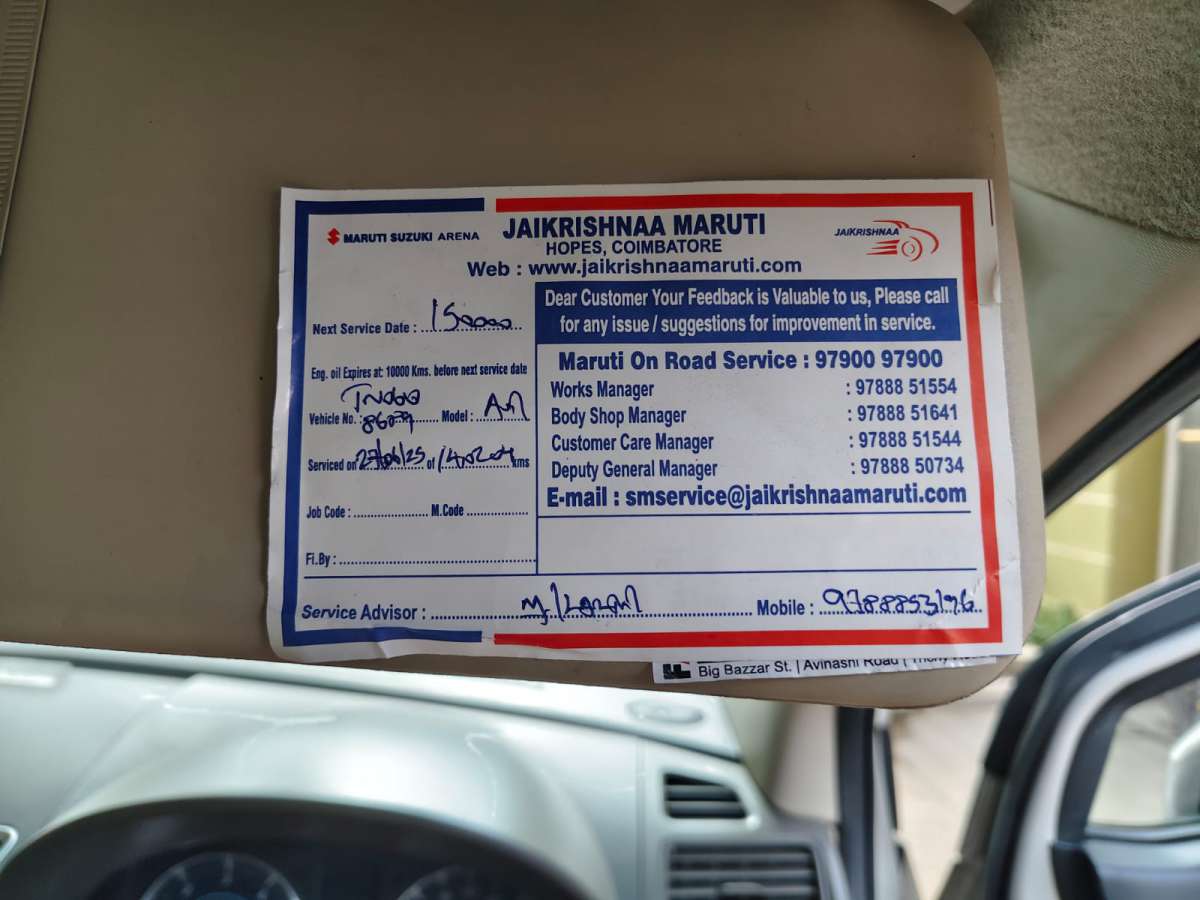 MARUTI SUZUKI ARENA
JAIKRISHNAA MARUTI
HOPES, COIMBATORE
Web : www.jaikrishnaamaruti.com
JAIKRISHNAA
Next Service Date : 150000
Eng. oil Expires at: 10000 Kms. before next service date
Vehicle No. : Model :
Serviced on 27/06/25 of kms
Job Code : M.Code
Fi.By :
Dear Customer Your Feedback is Valuable to us, Please call
for any issue / suggestions for improvement in service.
Maruti On Road Service : 97900 97900
Works Manager : 97888 51554
Body Shop Manager : 97888 51641
Customer Care Manager : 97888 51544
Deputy General Manager : 97888 50734
E-mail : smservice@jaikrishnaamaruti.com
Service Advisor : Mobile : 9788853196
Big Bazzar St. | Avinashi Road |